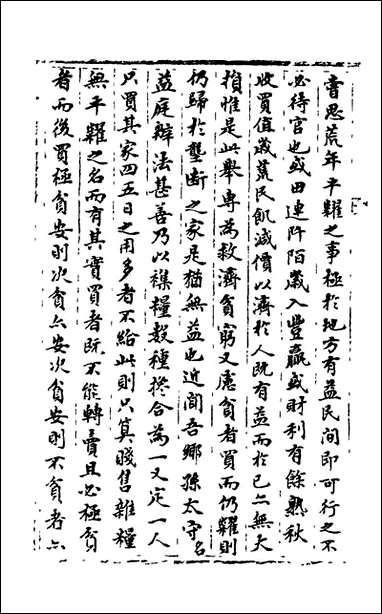 嘗思荒年平糶之事極於地方有益民間即可行之不
必待官也或田連阡陌歲入豐贏或財利有餘熟秋
收買值歲荒民飢減價以濟於人既有益而於己亦無大
損惟是此舉專為救濟貧窮又慮貧者買而仍糶則
仍歸於壟斷之家是猶無益也近聞吾鄉孫太守名
益庭辦法甚善乃以襍糧數種攙合為一又定一人
只買其家四五日之用多者不給此則只算賤售雜糧
無平糶之名而有其實買者既不能轉賣且必極貧
者而後買極貧安則次貧亦安次貧安則不貧者亦